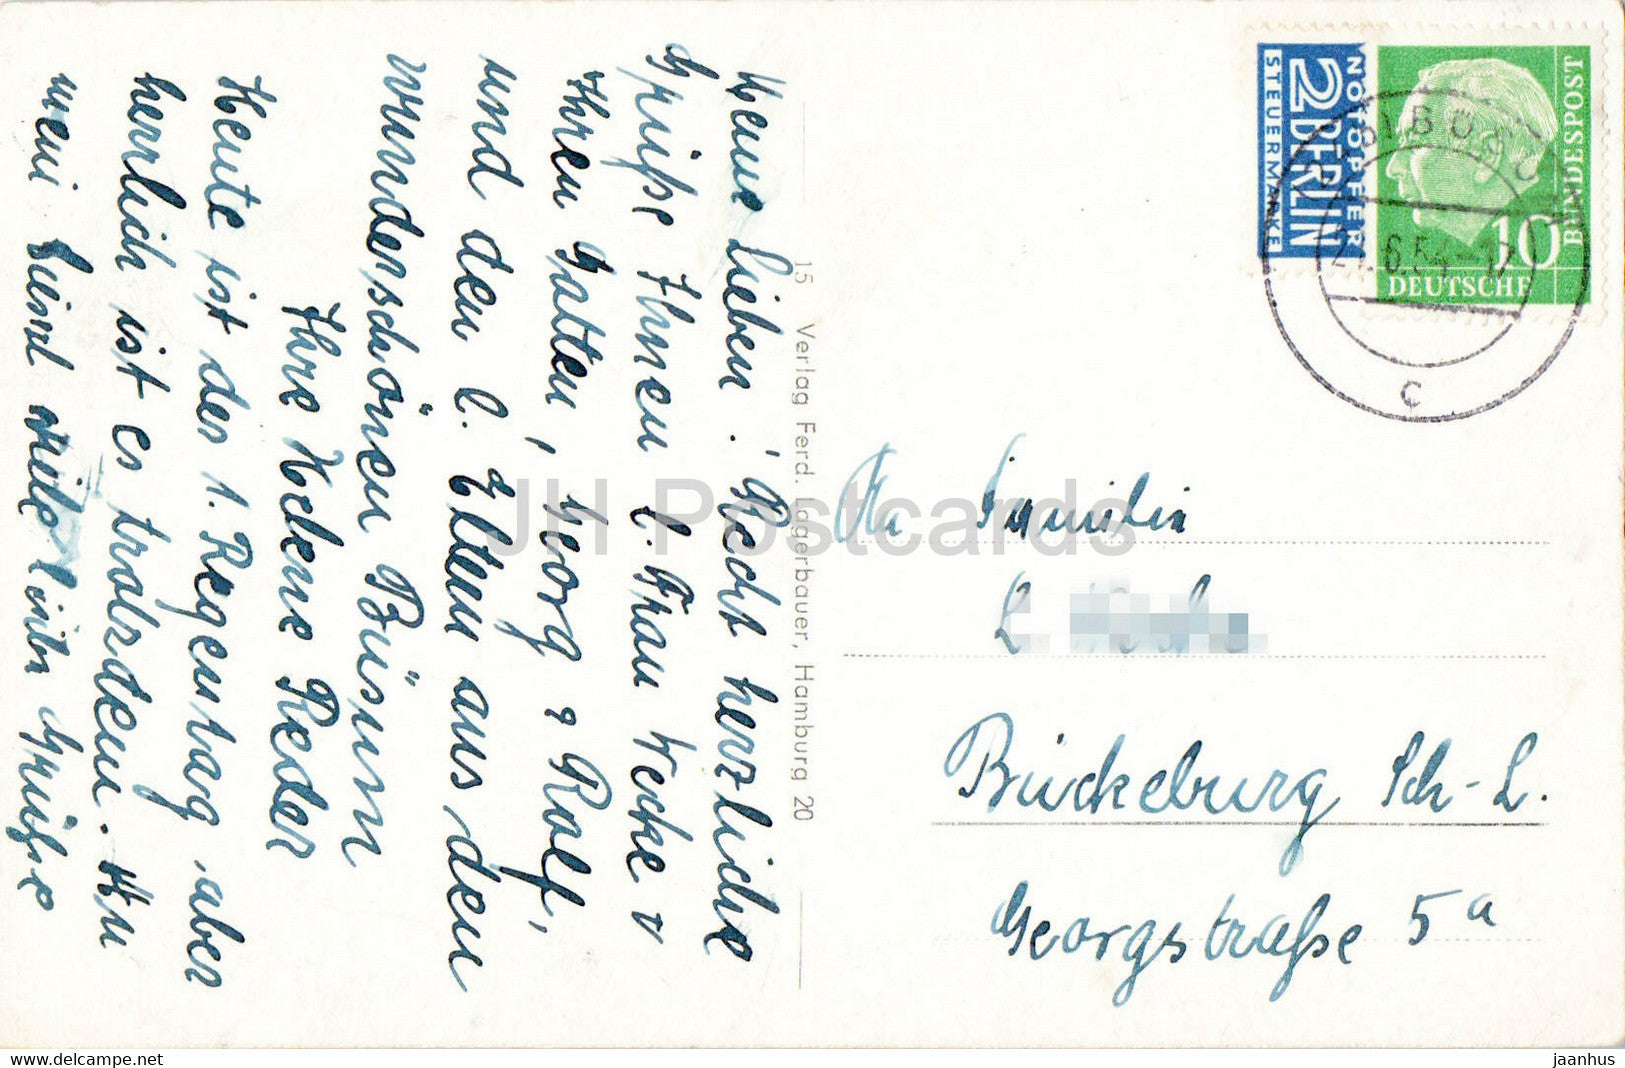 Meine Lieben! Recht herzliche
Grüße Ihnen l. Frau Wecke u
Ihren Gatten, Georg u Rolf,
und den l. Eltern aus dem
wunderschönen Büsum
Ihre Helene Reder
Heute ist der 1. Regentag aber
herrlich ist es trotzdem. An
mein Liesel viele liebe Grüße
15 Verlag Ferd. Lagerbauer, Hamburg 20
NOTOPFER
2 BERLIN
STEUERMARKE
10
DEUTSCHE
BUNDESPOST
6.54
c
An Familie
Bückeburg Sch-L.
Georgstraße 5a
JH Postcards
www.delcampe.net
jaanhus